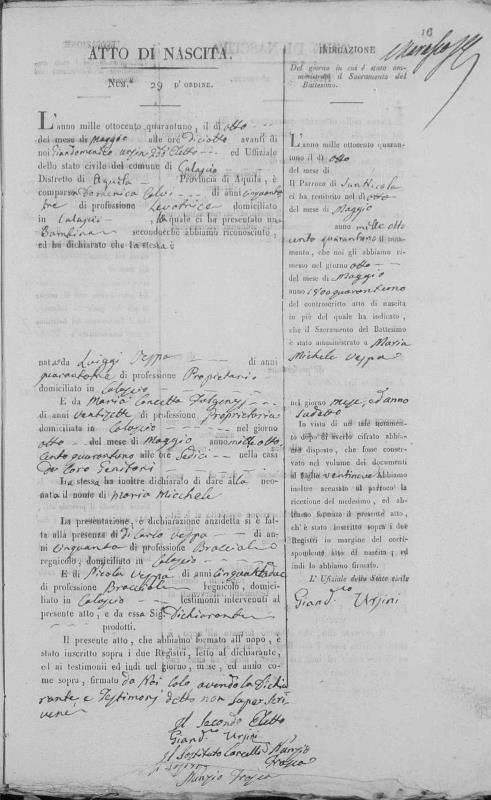 16
ATTO DI NASCITA.
Num.º 29 D'ORDINE.
L'anno mille ottocento quarantuno, il dì otto
del mese di Maggio alle ore Diciotto avanti di
noi Giandomenico Ursini Eletto ed Uffiziale
dello stato civile del comune di Calascio
Distretto di Aquila Provincia di Aquila, è
comparsa Domenica di anni cinquanta
tre di professione Levatrice domiciliata
in Calascio la quale ci ha presentato una
Bambina secondochè abbiamo riconosciuto,
ed ha dichiarato che la stessa è
nata da Luiggi Vespa di anni
quarantotre di professione Proprietario
domiciliato in Calascio
E da Maria Concetta
di anni ventisette di professione Proprietaria
domiciliata in Calascio nel giorno
otto del mese di Maggio anno mille otto
cento quarantuno alle ore Sedici nella casa
de loro Genitori
La stessa ha inoltre dichiarato di dare alla neo-
nata il nome di Maria Micchele
La presentazione, e dichiarazione anzidetta si è fat-
ta alla presenza di di Carlo Vespa di an-
ni cinquanta di professione Bracciale
regnicolo, domiciliato in Calascio
E di Nicola Vespa di anni cinquantadue
di professione Bracciale regnicolo, domici-
liato in Calascio testimonii intervenuti al
presente atto, e da essa Sig. Dichiarante
prodotti.
Il presente atto, che abbiamo formato all'uopo, è
stato inscritto sopra i due Registri, letto al dichiarante,
ed ai testimonii ed indi nel giorno, mese, ed anno co-
me sopra, firmato da Noi solo avendo la Dichia
rante, e Testimonj detto non saper scri-
vere
Il secondo Eletto
Giand.º Ursini
Il Sostituto Cancelliere Nunzio
Frasca
Nunzio Frasca
INDICAZIONE
Del giorno in cui è stato am-
ministrato il Sacramento del
Battesimo.
L'anno mille ottocento quaran-
tuno il dì otto
del mese di
Il Parroco di San Nicola
ci ha restituito nel dì otto
del mese di Maggio
anno mille otto
cento quarantuno il nota-
mento, che noi gli abbiamo ri-
messo nel giorno otto
del mese di Maggio
anno 1800 quarantuno
del controscritto atto di nascita
in piè del quale ha indicato,
che il Sacramento del Battesimo
è stato amministrato a Maria
Michele Vespa
nel giorno mese, ed anno
Sudetto
In vista di un tale notamento
dopo di averlo cifrato abbia-
mo disposto, che fosse conser-
vato nel volume dei documenti
al foglio ventinove Abbiamo
inoltre accusato al parroco la
ricezione del medesimo, ed ab-
biamo formato il presente atto,
ch'è stato inscritto sopra i due
Registri in margine del corri-
spondente atto di nascita, ed
indi lo abbiamo firmato.
L'Ufiziale dello Stato civile
Giand.º Ursini